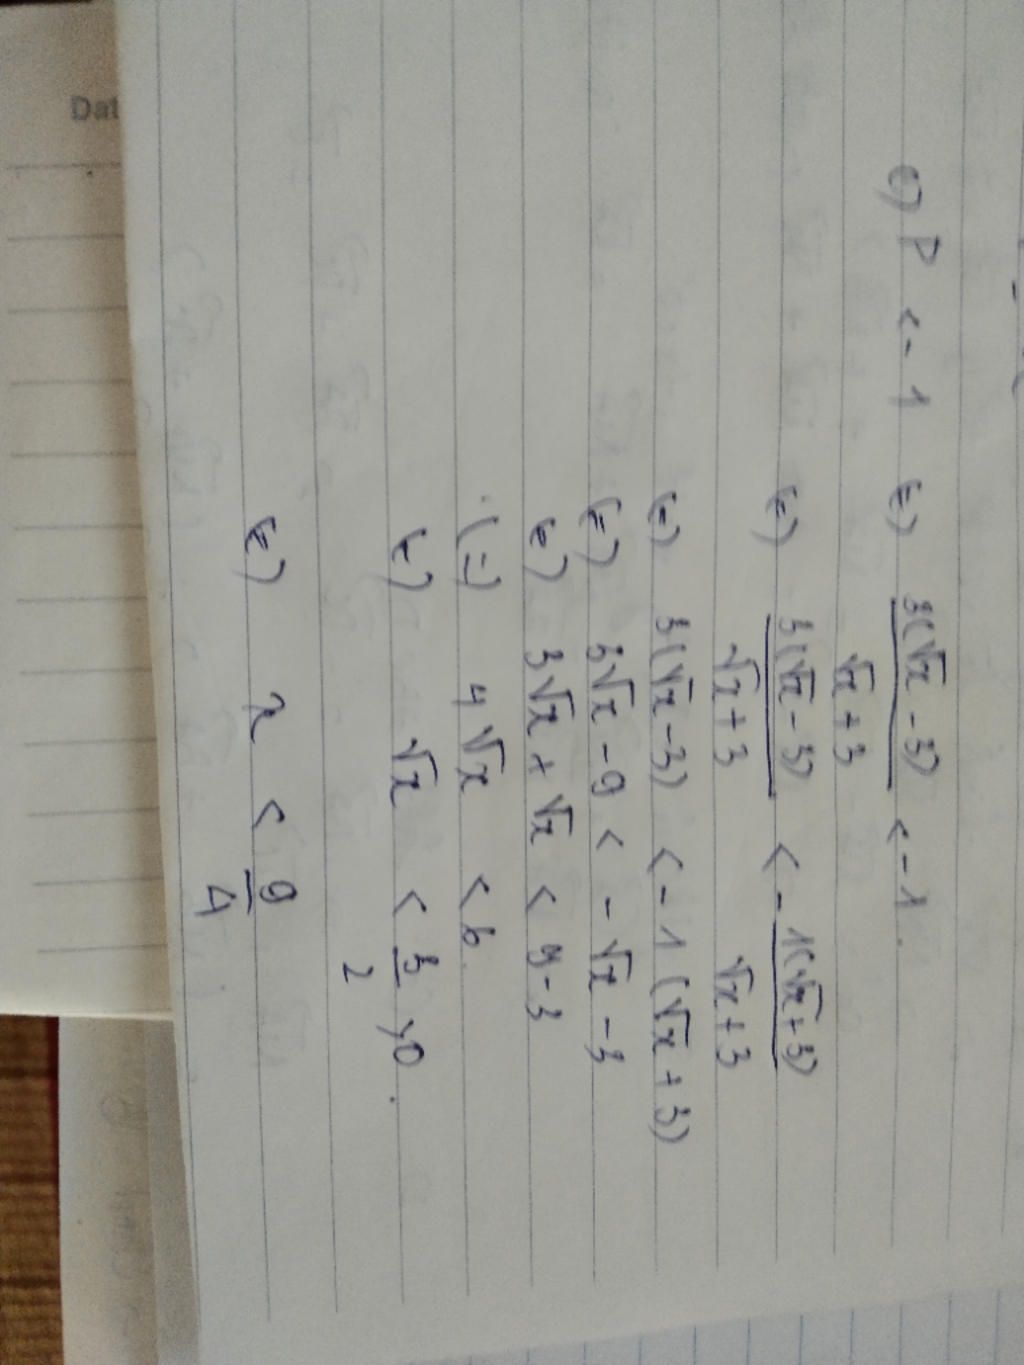 c) P < -1 (=) 3(√x - 3) / √x + 3 < -1.
(=) 3(√x - 3) / √x + 3 < - 1(√x + 3) / √x + 3
(=) 3(√x - 3) < -1 (√x + 3)
(=) 3√x - 9 < - √x - 3
(=) 3√x + √x < 9 - 3
(=) 4√x < 6.
(=) √x < 3 / 2 > 0.
(=) x < 9 / 4
Dat